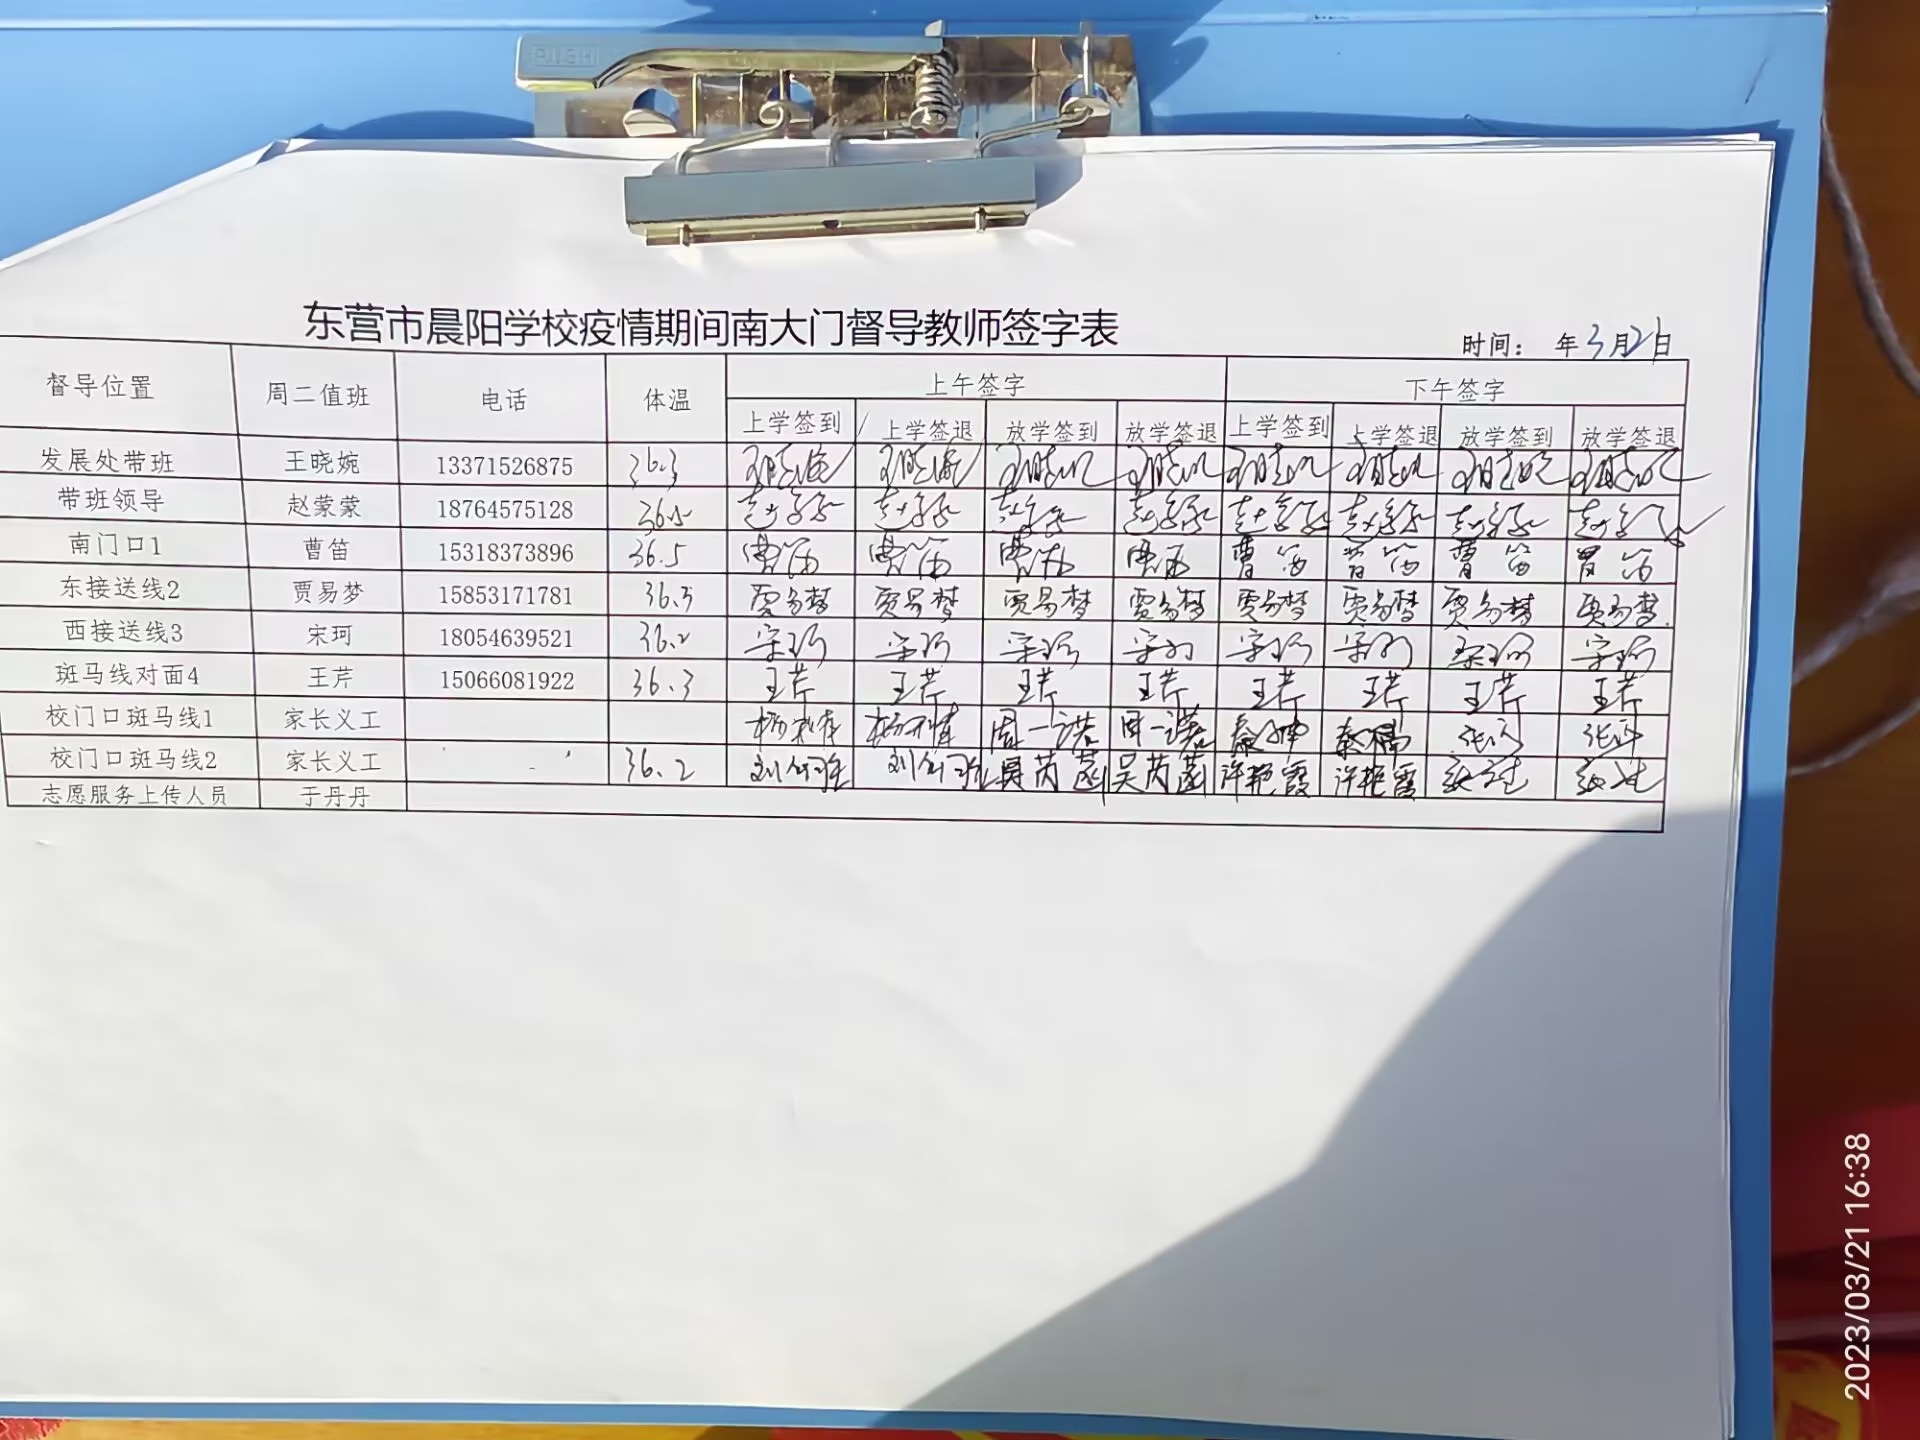 RUSHI
东营市晨阳学校疫情期间南大门督导教师签字表
时间： 年3月21日
督导位置 周二值班 电话 体温 上午签字 下午签字
上学签到 上学签退 放学签到 放学签退 上学签到 上学签退 放学签到 放学签退
发展处带班 王晓婉 13371526875 36.3 王晓婉 王晓婉 王晓婉 王晓婉 王晓婉 王晓婉 王晓婉 王晓婉
带班领导 赵蒙蒙 18764575128 36.5 赵蒙蒙 赵蒙蒙 赵蒙蒙 赵蒙蒙 赵蒙蒙 赵蒙蒙 赵蒙蒙 赵蒙蒙
南门口1 曹笛 15318373896 36.5 曹笛 曹笛 曹笛 曹笛 曹笛 曹笛 曹笛 曹笛
东接送线2 贾易梦 15853171781 36.5 贾易梦 贾易梦 贾易梦 贾易梦 贾易梦 贾易梦 贾易梦 贾易梦
西接送线3 宋珂 18054639521 36.2 宋珂 宋珂 宋珂 宋珂 宋珂 宋珂 宋珂 宋珂
斑马线对面4 王芹 15066081922 36.3 王芹 王芹 王芹 王芹 王芹 王芹 王芹 王芹
校门口斑马线1 家长义工 周一诺 周一诺
校门口斑马线2 家长义工 36.2 吴芮菡 吴芮菡 许艳霞 许艳霞
志愿服务上传人员 于丹丹
2023/03/21 16:38